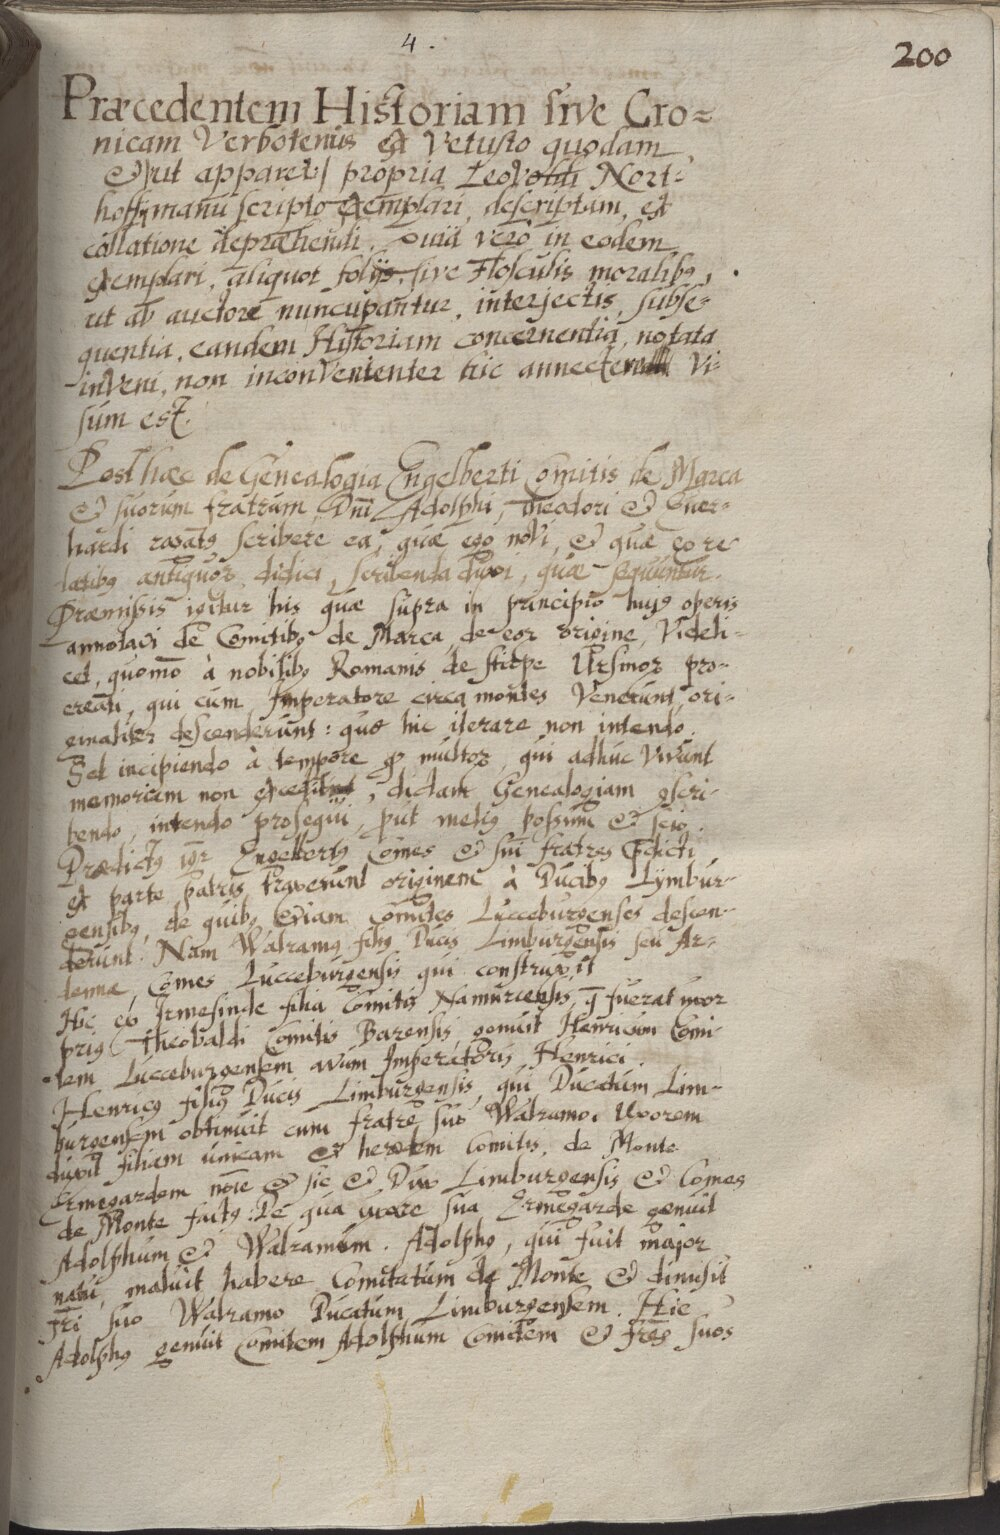 4.
200
Præcedentem Historiam sive Cro=
nicam Verbotenus ex Vetusto quodam
et ut apparet propria Levoldi Nort:
hoff manu scripto exemplari, descriptam, ex
collatione depræhendi. Quia vero in eodem
exemplari, aliquot folijs, sive Flosculis moralibꝰ,
ut ab auctore nuncupantur, interjectis, subse=
quentia, eandem Historiam concernentia, notata
inveni, non inconvenienter hic annectere Vi=
sum est.
Post hæc de Genealogia Engelberti Comitis de Marca
& suorum fratrum, Dn̄i Adolphi, Theodori & Ever=
hardi rogatꝰ scribere ea, quæ ego novi, & quæ ex re
latibꝰ antiquoꝝ didici, scribenda duxi, quæ sequuntur.
Præmissis igitur his quæ supra in principio hujꝰ operis
annotavi de Comitibꝰ de Marca, de eoꝝ origine, Videli=
cet, quomō à nobilibꝰ Romanis de stirpe Ursinoꝝ pro=
creati, qui cum Imperatore circa montes Venerunt, ori=
ginaliter descenderunt: quæ hic iterare non intendo.
Set incipiendo à tempore qd̄ multoꝝ, qui adhuc vivunt
memoriam non excedit, dictam Genealogiam ꝯscri=
bendo, intendo prosequi, put meliꝰ possum & scio.
Prædictꝰ igr̄ Engelbertꝰ Comes & sui fratres p̄dicti
ex parte patris traxerunt originem à Ducibꝰ Lymbur=
gensibꝰ, de quibꝰ etiam Comites Lucceburgenses descen=
derunt. Nam Walramꝰ filiꝰ Ducis Limburgensis seu Ar=
dennæ, Comes Lucceburgensis qui construxit
Hic ex Irmesinde filia Comitis Namurcensis, q̄ fuerat uxor
priꝰ Theobaldi Comitis Barensis, genuit Henricum Comi=
tem Lucceburgensem avum Imperatoris Henrici.
Henricꝰ filiꝰ Ducis Limburgensis, qui Ducatum Lim=
burgensem obtinuit cum fratre suo Walramo, Uxorem
duxit filiam unicam & heredem Comitis de Monte
Ermegardem noīe & sic & Dux Limburgensis & Comes
de Monte factꝰ. De qua uxore sua Ermegarde genuit
Adolphum & Walramum. Adolphꝰ, qui fuit major
natu, maluit habere Comitatum de Monte & dimisit
fr̄i suo Walramo Ducatum Limburgensem. Hic
Adolphꝰ genuit Comitem Adolphum Comitem & fr̄es suos